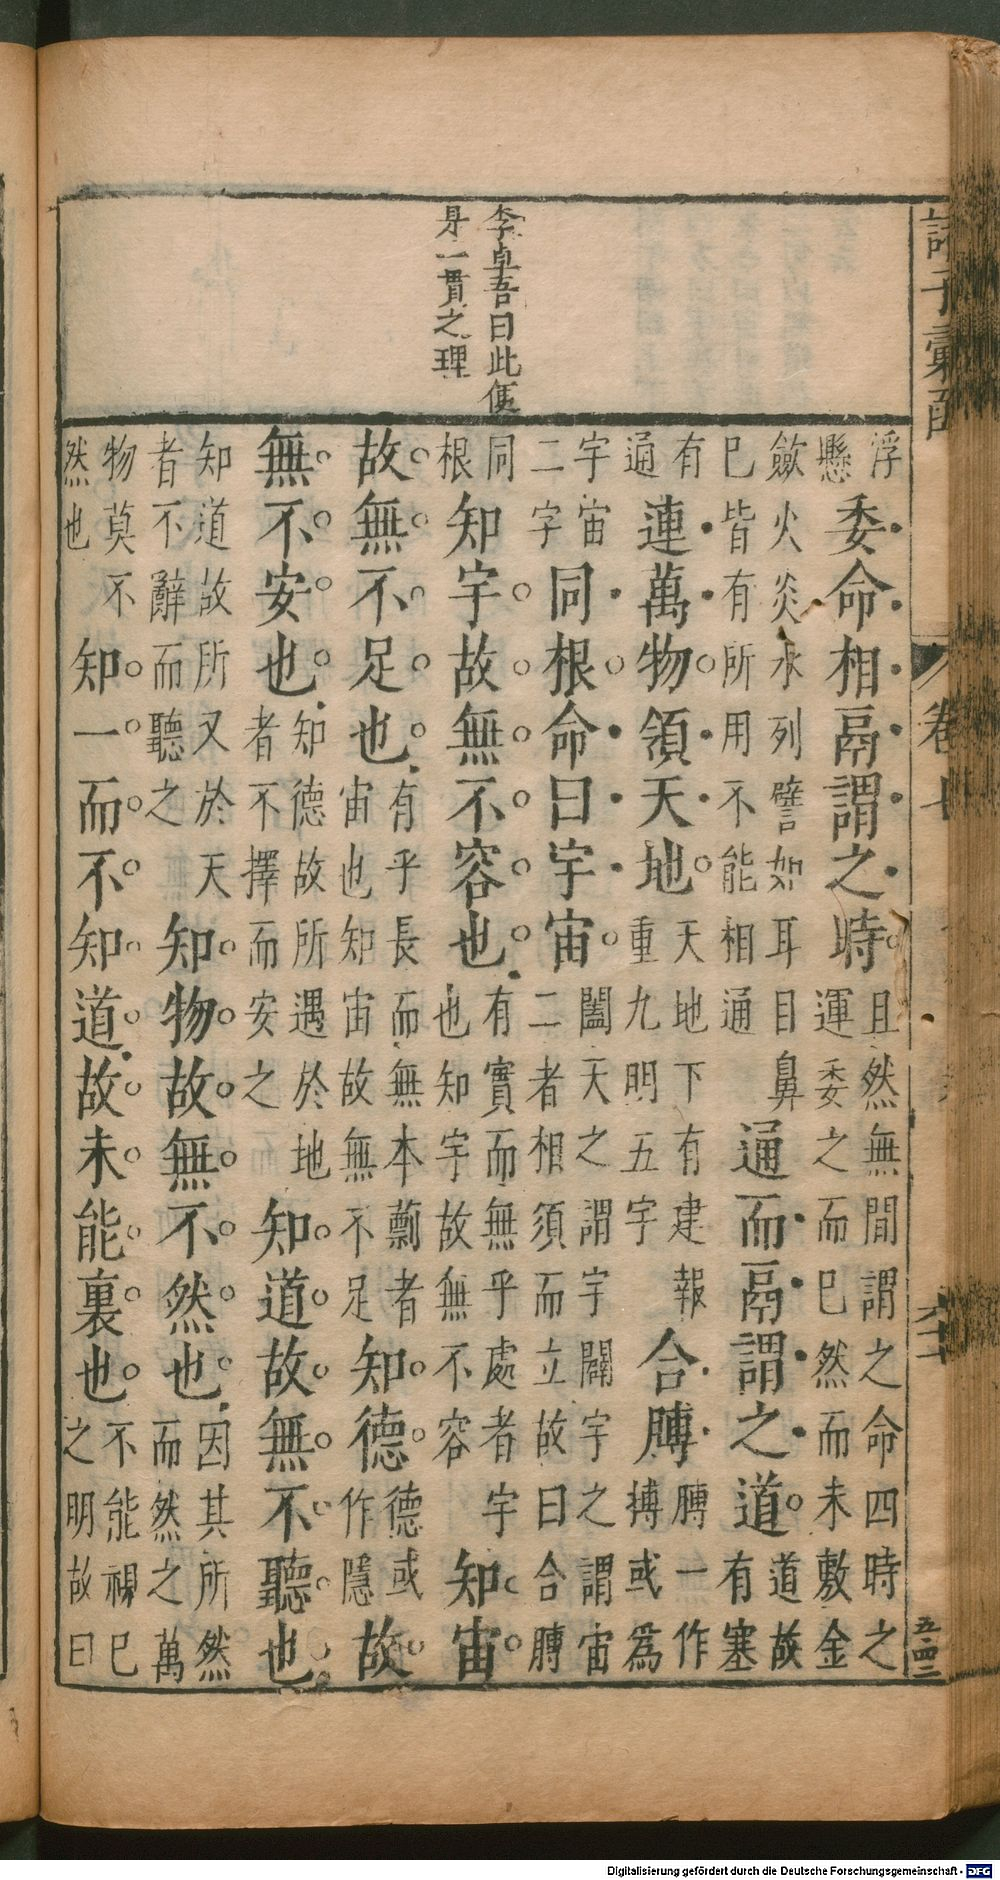 諸子彙函
李卓吾曰此便
是一貫之理
浮
懸
委命相鬲謂之時
且然無間謂之命四時之
運委之而已然而未敷金
斂火炎水列譬如耳目鼻
已皆有所用不能相通
通而鬲謂之道
道故
有塞
有
通
連萬物領天地
天地下有建報
重九明五宇
合膊
膊一作
搏或為
宇宙
二字
同根命曰宇宙
闔天之謂宇闢宇之謂宙
二者相須而立故曰合膊
同
根
知宇故無不容也
有實而無乎處者宇
也知宇故無不容
知宙
故無不足也
有乎長而無本剽者
宙也知宙故無不足
知德
德或
作隱
故
無不安也
知德故所遇於地
者不擇而安之
知道故無不聽也
知道故所又於天
者不辭而聽之
知物故無不然也
因其所然
而然之萬
物莫不
然也
知一而不知道故未能裏也
不能視已
之明故曰
Digitalisierung gefördert durch die Deutsche Forschungsgemeinschaft - DFG